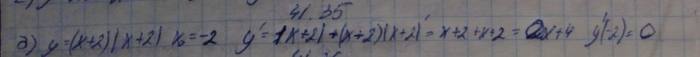 41.35
д) y=(x+2)|x+2| x₀=-2 y'=1|x+2|+(x+2)|x+2|'=x+2+x+2=2x+4 y'(-2)=0